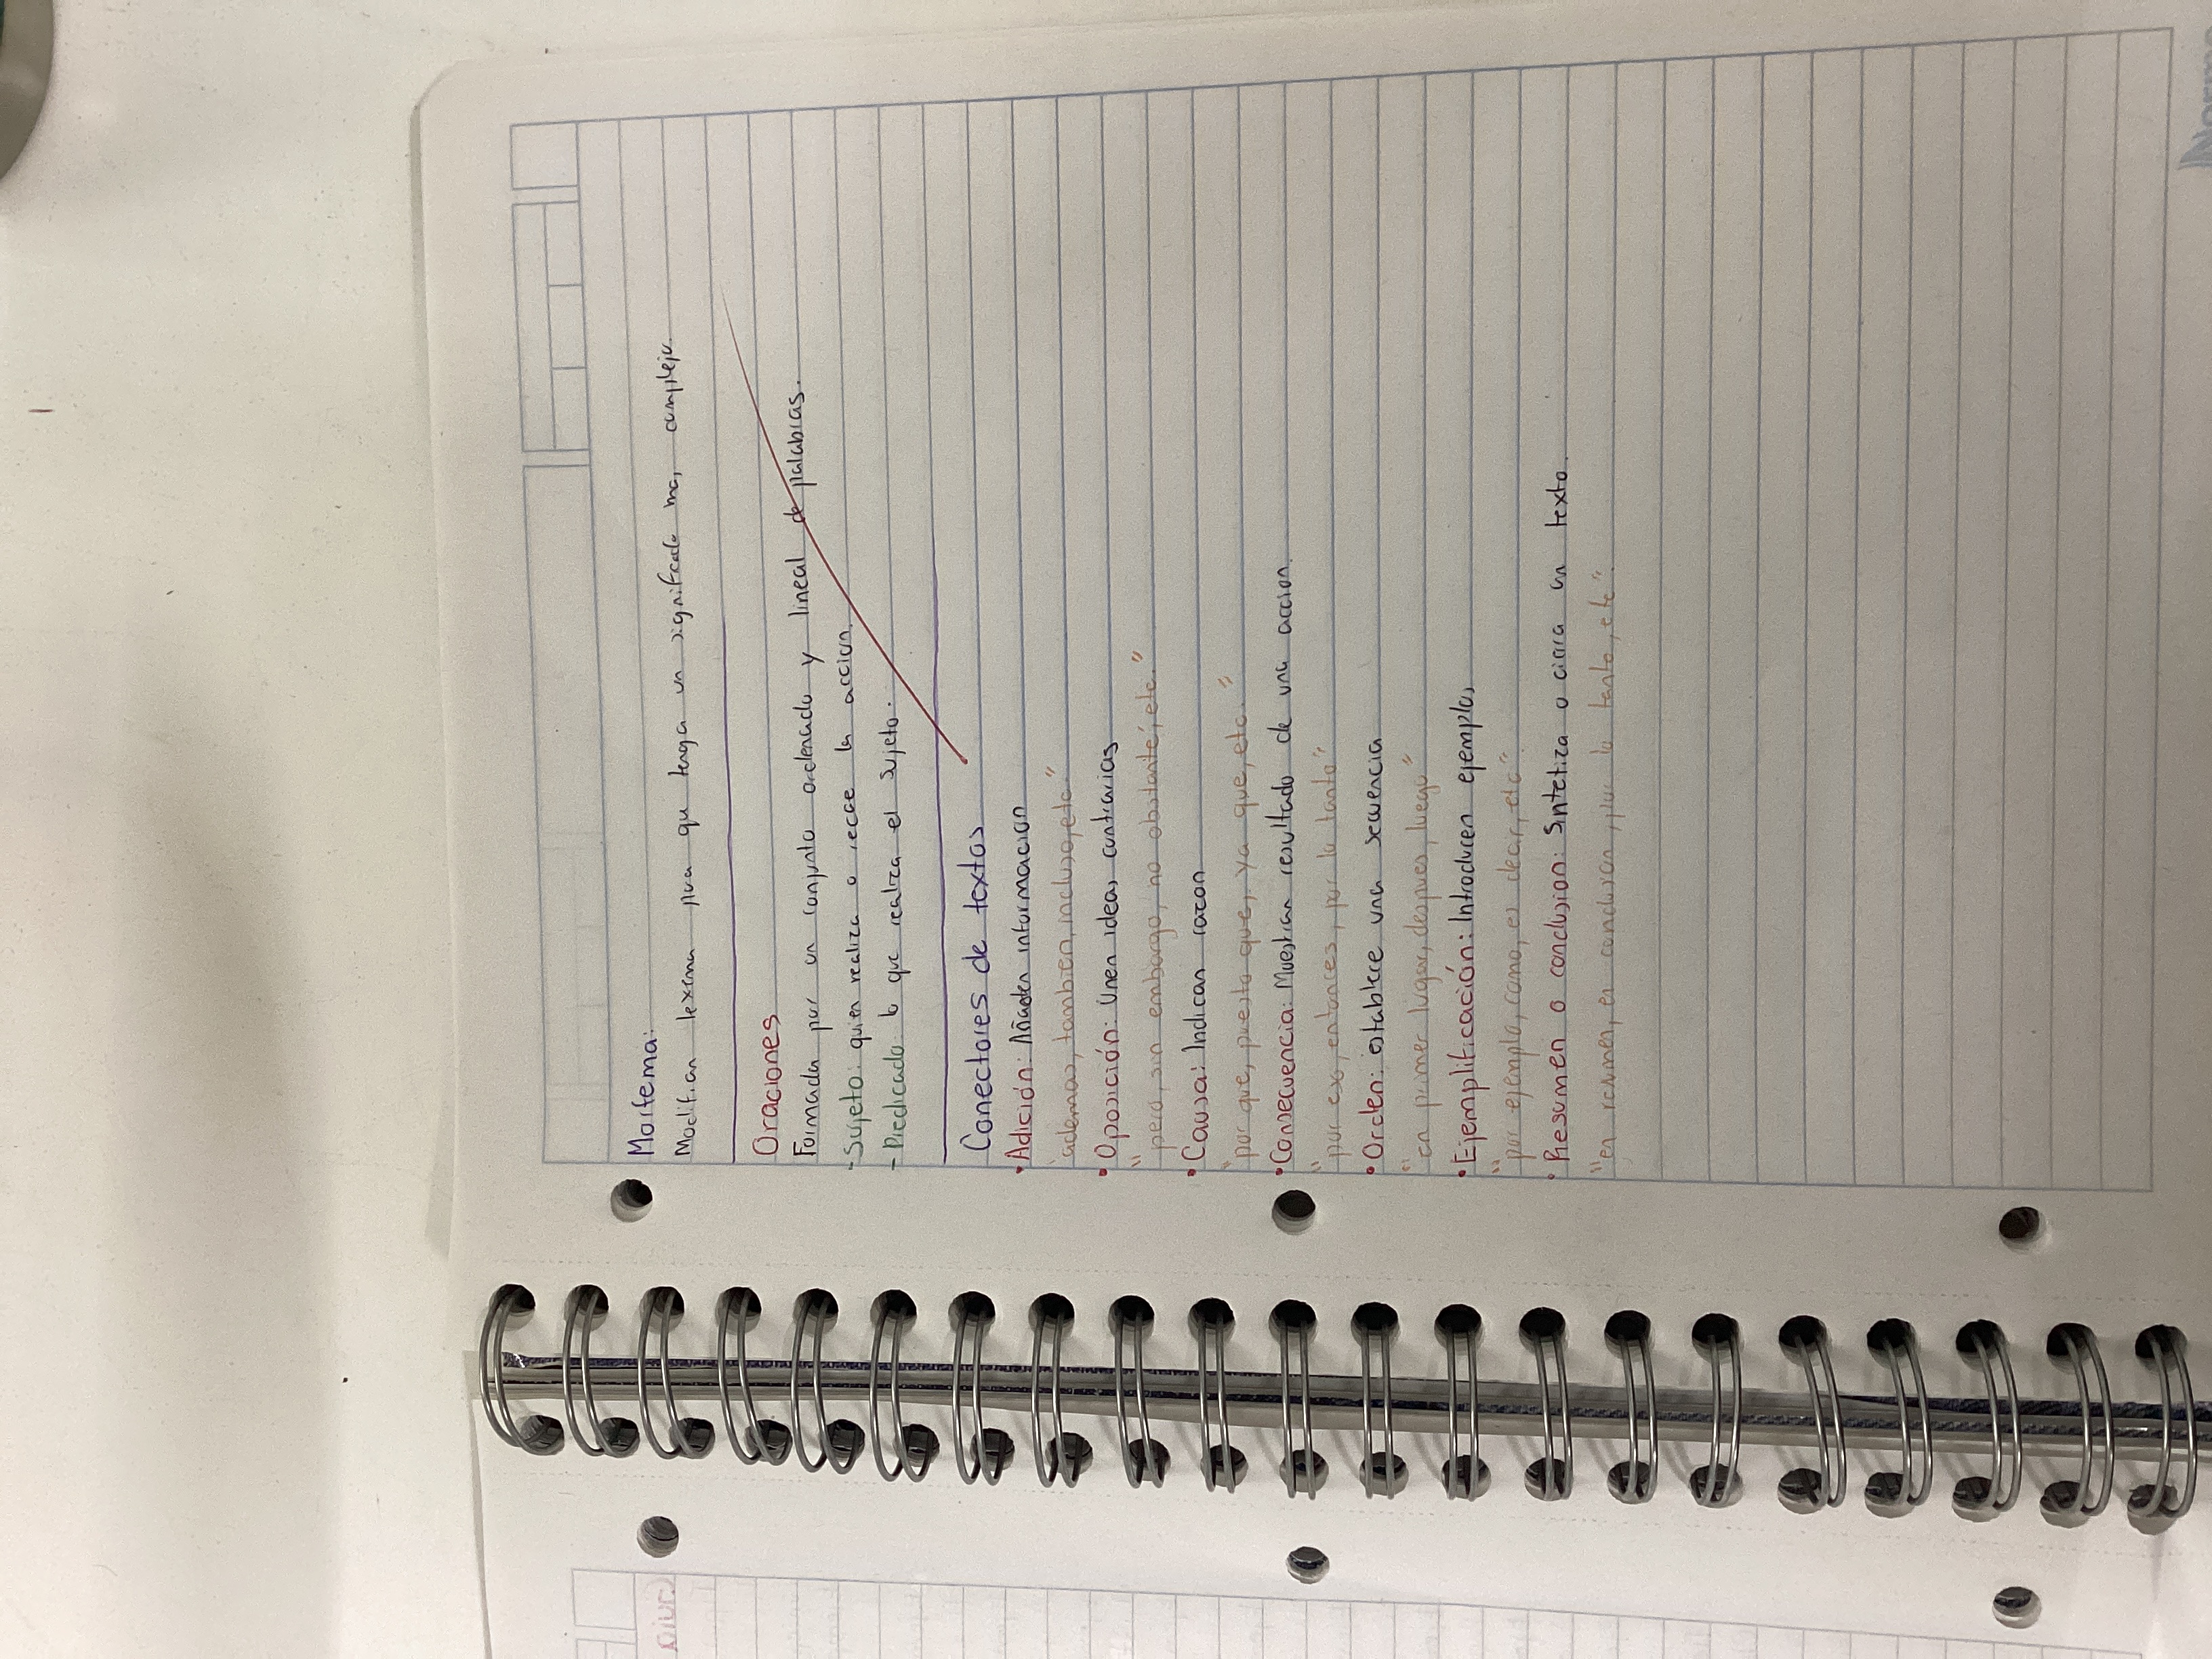 Morfema:
Modifican lexema para que tenga un significado mas complejo
Oraciones
Formadas por un conjunto ordenado y lineal de palabras.
- Sujeto: quien realiza o recae la accion.
- Predicado lo que realiza el sujeto.
Conectores de textos
• Adición: Añaden informacion
"ademas, tambien, incluso, etc."
• Oposición: Unen ideas contrarias
"pero, sin embargo, no obstante, etc."
• Causa: Indican razon
"por que, puesto que, ya que, etc."
• Consecuencia: Muestran resultado de una accion.
"por eso, entonces, por lo tanto"
• Orden: establece una secuencia
"en primer lugar, despues, luego"
• Ejemplificación: Introducen ejemplos
"por ejemplo, como, es decir, etc"
• Resumen o conclusion: Sintetiza o cierra un texto.
"en resumen, en conclusion, por lo tanto, etc".
Norma